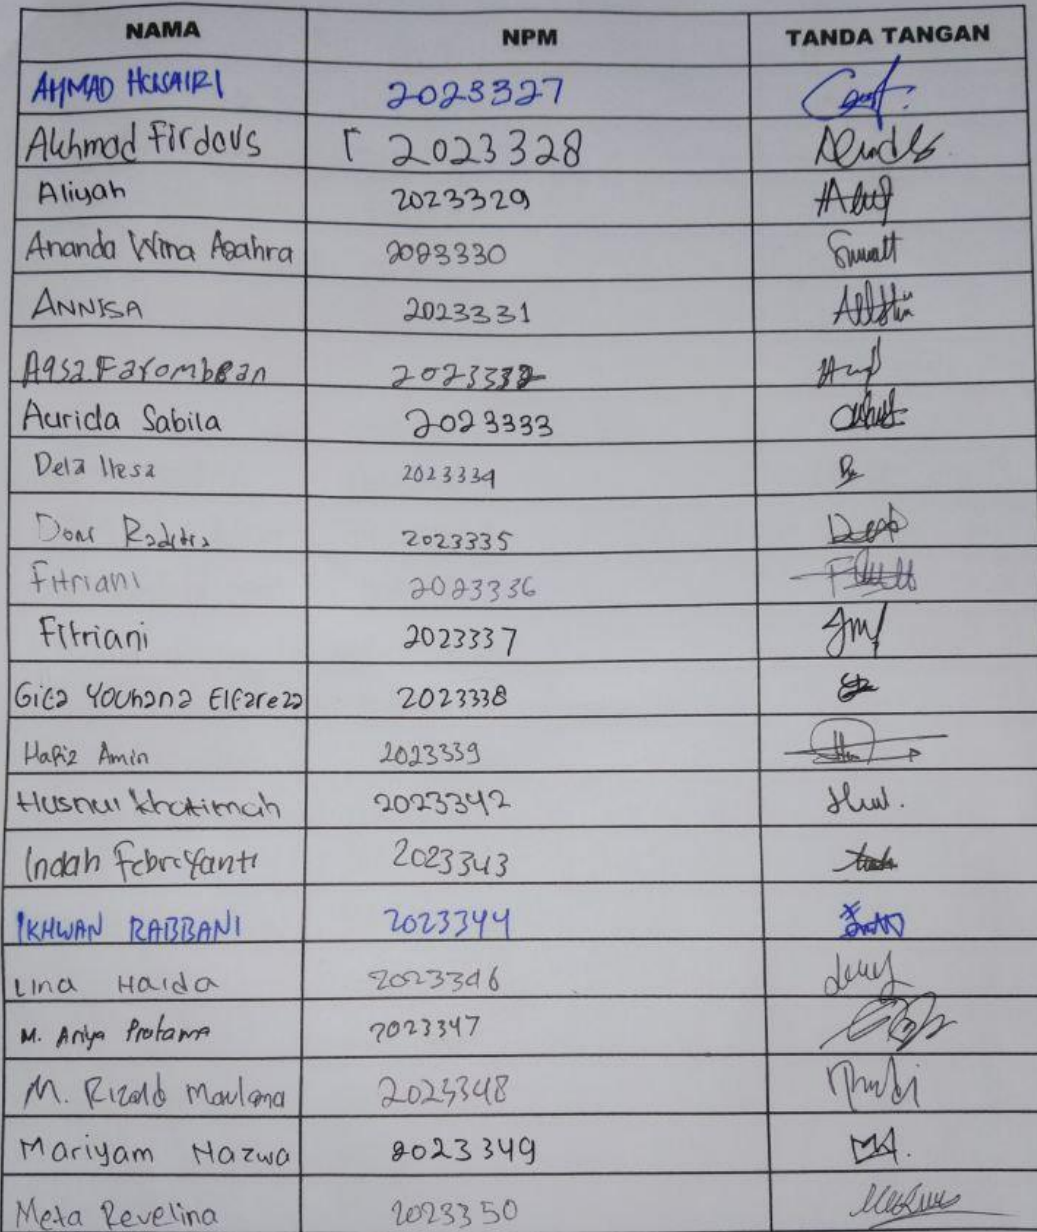 NAMA NPM TANDA TANGAN
AHMAD HUSAIRI 2023327
Akhmad Firdaus 2023328
Aliyah 2023329
Ananda Wina Azahra 2023330
ANNISA 2023331
Aqsa Farombean 2023332
Aurida Sabila 2023333
Dela Ilesa 2023334
Doni Raditia 2023335
Fitriani 2023336
Fitriani 2023337
Gita Youhana Elfareza 2023338
Hafiz Amin 2023339
Husnul Khatimah 2023342
Indah Febriyanti 2023343
IKHWAN RABBANI 2023344
Lina Haida 2023346
M. Ariya Pratama 2023347
M. Rizald Maulana 2023348
Mariyam Nazwa 2023349 MA.
Meta Revelina 2023350